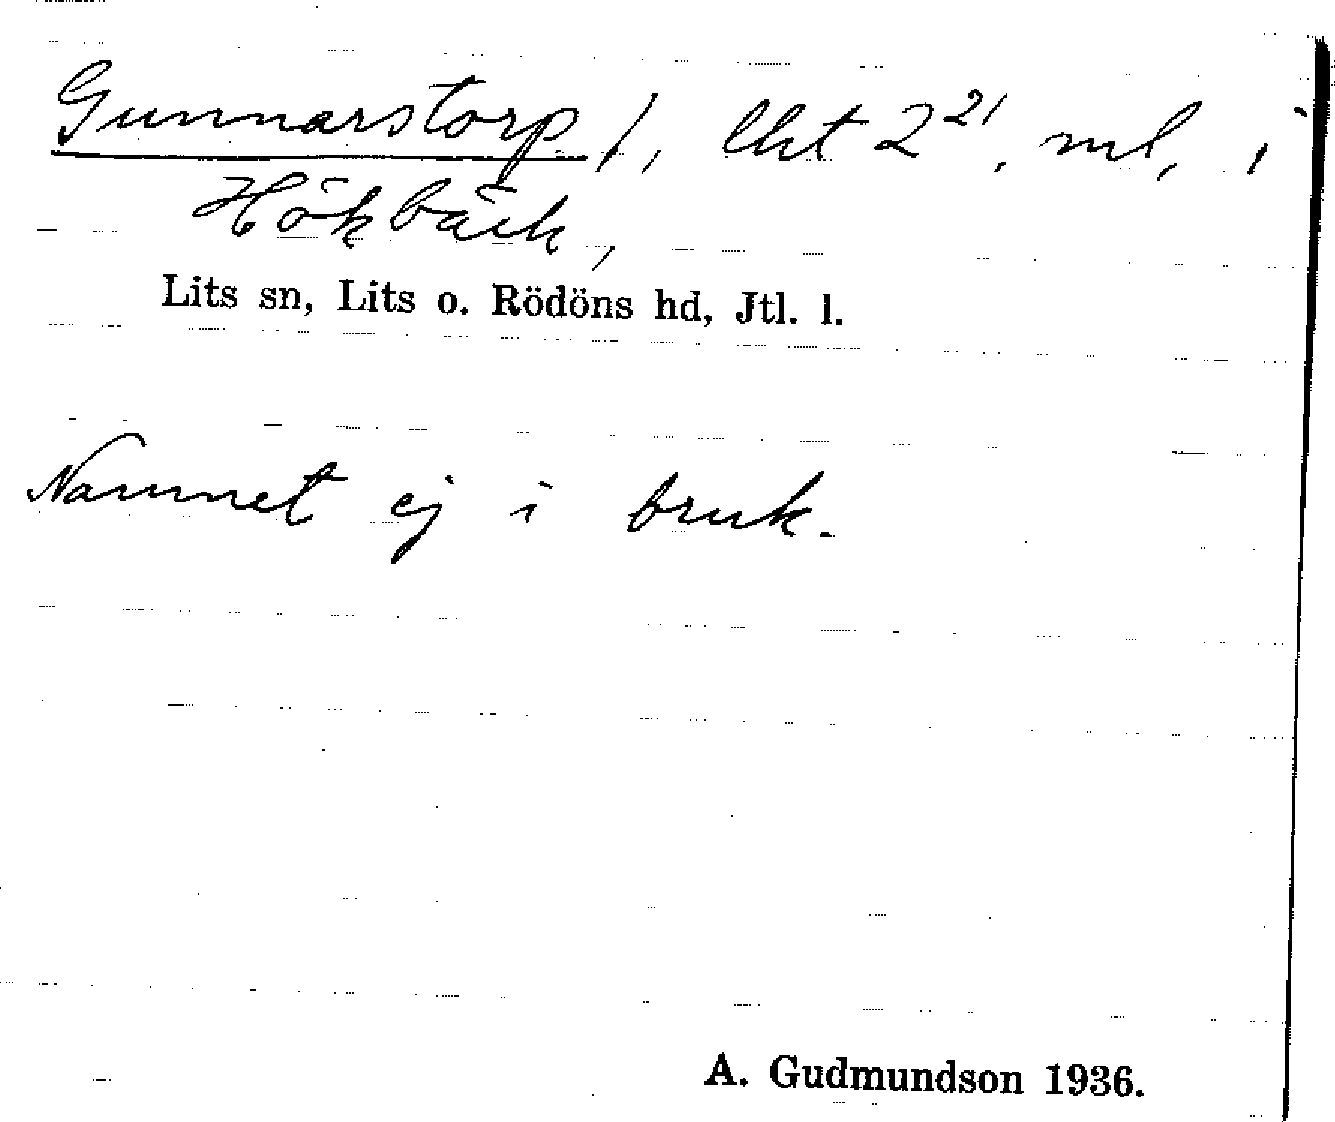 Gunnarstorp /, lht 2²¹, ml, i
Hökbäck,
Lits sn, Lits o. Rödöns hd, Jtl. l.
Namnet ej i bruk.
A. Gudmundson 1936.